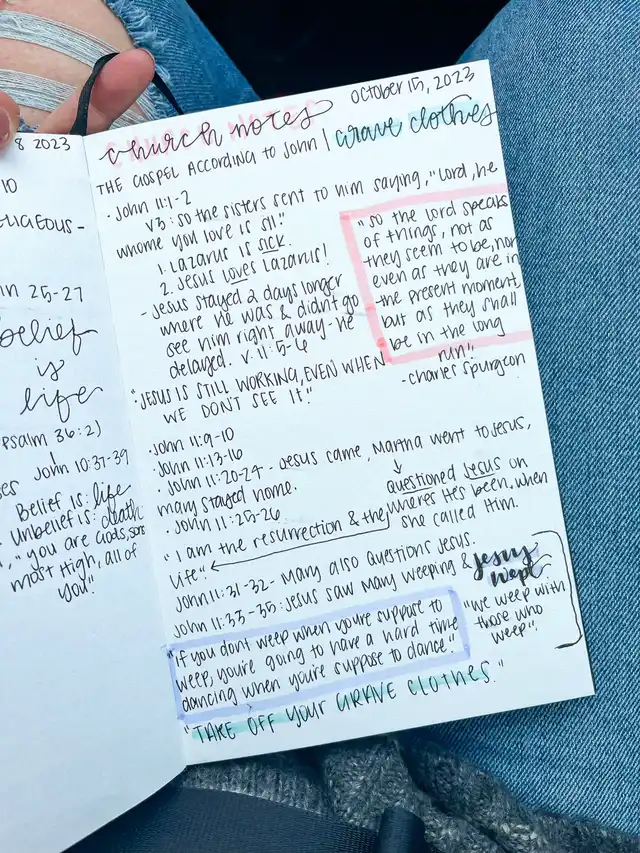 8 2023
10
25-27
Belief
is
life
(Psalm 36:2)
John 10:37-39
Belief is: life
Unbelief is: death
"you are Gods, sons
most High, all of
you."
October 15, 2023
church notes
THE GOSPEL ACCORDING TO John | Grave clothes
· John 11:1-2
v3: so the sisters sent to him saying, "Lord, he
whome you love is ill."
1. Lazarus is sick.
2. Jesus loves Lazarus!
- Jesus stayed 2 days longer
where he was & didn't go
see him right away - he
delayed. v. 11:5-6
"So the Lord speaks
of things, not as
they seem to be, nor
even as they are in
the present moment,
but as they shall
be in the long
run".
- Charles Spurgeon
"JESUS IS STILL WORKING, EVEN WHEN
WE DON'T SEE IT."
· John 11:9-10
· John 11:13-16
· John 11:20-24 - Jesus came, Martha went to Jesus,
mary stayed home.
Questioned Jesus on
wheres He's been, when
she called Him.
· John 11:25-26
"I am the resurrection & the
life".
John 11:31-32 - Mary also questions Jesus.
John 11:33-35: Jesus saw Mary weeping & Jesus
wept
"we weep with
those who
weep".
"if you don't weep when you're suppose to
weep, you're going to have a hard time
dancing when you're suppose to dance."
"TAKE OFF YOUR GRAVE CLOTHES."